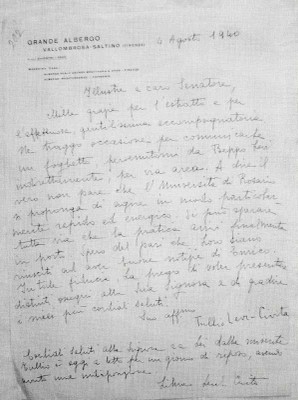 GRANDE ALBERGO
VALLOMBROSA-SALTINO (FIRENZE)
4 Agosto 1940
Illustre e caro Senatore,
Mille grazie per l'estratto e per
l'affettuosa, gentilissima accompagnatoria.
Ne traggo occasione per comunicarle
un foglietto pervenutomi da Beppo Levi
indirettamente, per via aerea. A dire il
vero non pare che l'Università di Rosario
si proponga di agire in modo particolar
mente rapido ed energico. Si può sperare
tutta via che la pratica arrivi finalmente
in porto. Spero del pari che Loro siano
riusciti ad aver buone notizie di Enrico.
In tale fiducia La prego di voler presentare
distinti omaggi alla Sua Signora e di gradire
i miei più cordiali saluti.
Suo affmo
Tullio Levi-Civita
Cordiali saluti alla Signora ed a Lei dalla
Tullio è oggi a letto per un giorno di riposo, avendo
avuto una indisposizione.
Libera Levi Civita